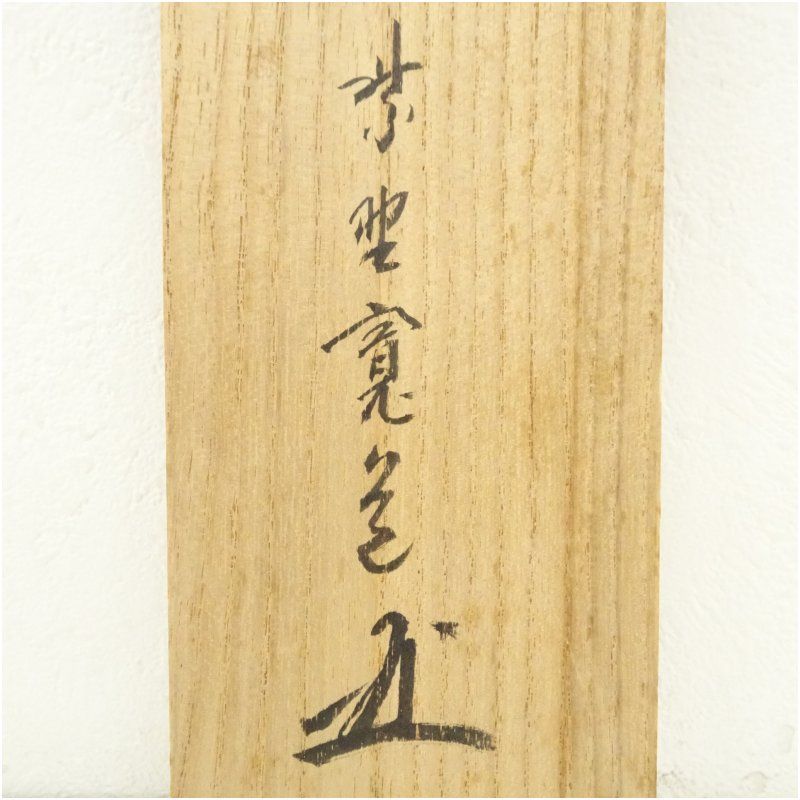 紫野寛道